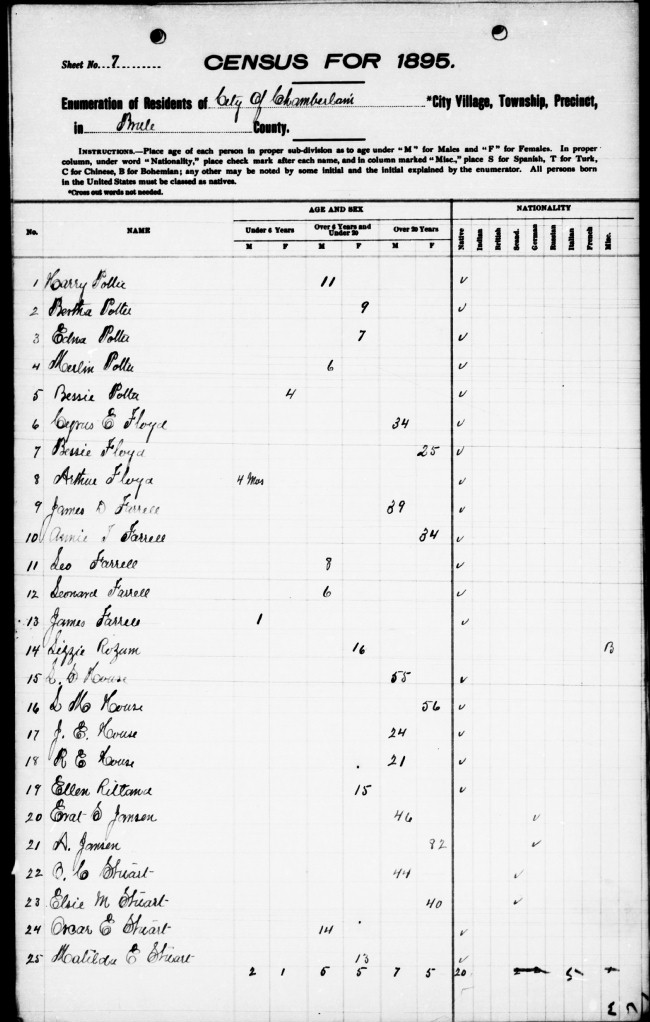 Sheet No. 7
CENSUS FOR 1895.
Enumeration of Residents of City Of Chamberlain *City Village, Township, Precinct,
in Brule County.
INSTRUCTIONS.—Place age of each person in proper sub-division as to age under "M" for Males and "F" for Females. In proper
column, under word "Nationality," place check mark after each name, and in column marked "Misc.," place S for Spanish, T for Turk,
C for Chinese, B for Bohemian; any other may be noted by some initial and the initial explained by the enumerator. All persons born
in the United States must be classed as natives.
*Cross out words not needed.
AGE AND SEX NATIONALITY
No. NAME Under 6 Years Over 6 Years and Under 20 Over 20 Years Native Indian British Scand. German Russian Italian French Misc.
M F M F M F
1 Harry Potter 11 ✓
2 Bertha Potter 9 ✓
3 Edna Potter 7 ✓
4 Merlin Potter 6 ✓
5 Bessie Potter 4 ✓
6 Cyrus E Floyd 34 ✓
7 Bessie Floyd 25 ✓
8 Arthur Floyd 4 Mos ✓
9 James D Farrell 39 ✓
10 Annie T Farrell 34 ✓
11 Leo Farrell 8 ✓
12 Leonard Farrell 6 ✓
13 James Farrell 1 ✓
14 Lizzie Rozum 16 B
15 House 55 ✓
16 L M House 56 ✓
17 J. E. House 24 ✓
18 R E House 21 ✓
19 Ellen 15 ✓
20 E Jansen 46 ✓
21 A. Jansen 32 ✓
22 C Stuart 44 ✓
23 Elsie M Stuart 40 ✓
24 Oscar E Stuart 14 ✓
25 Matilda C Stuart 13 ✓
2 1 5 5 7 5 20